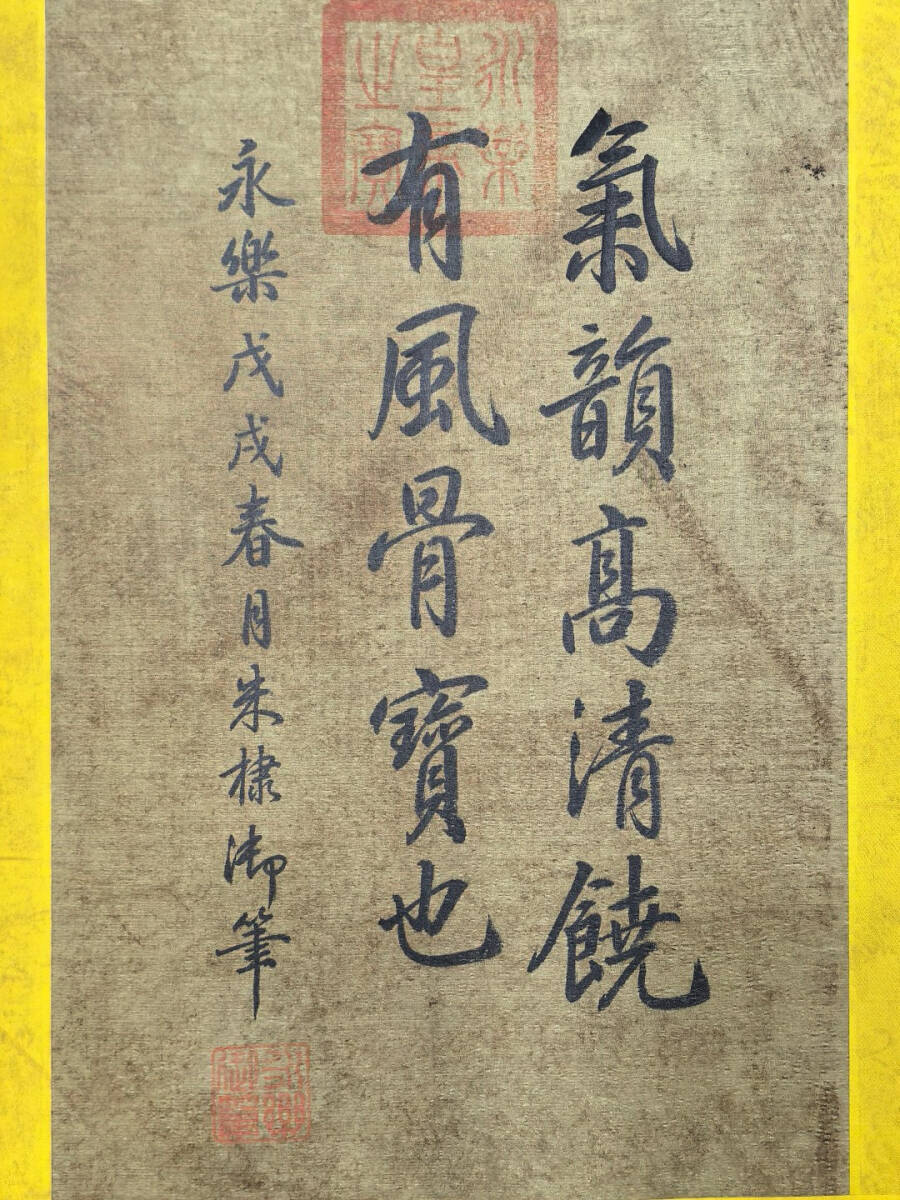 氣韻高清饒
有風骨寶也
永樂戊戌春月朱棣御筆
永樂皇帝之寶
永樂御筆